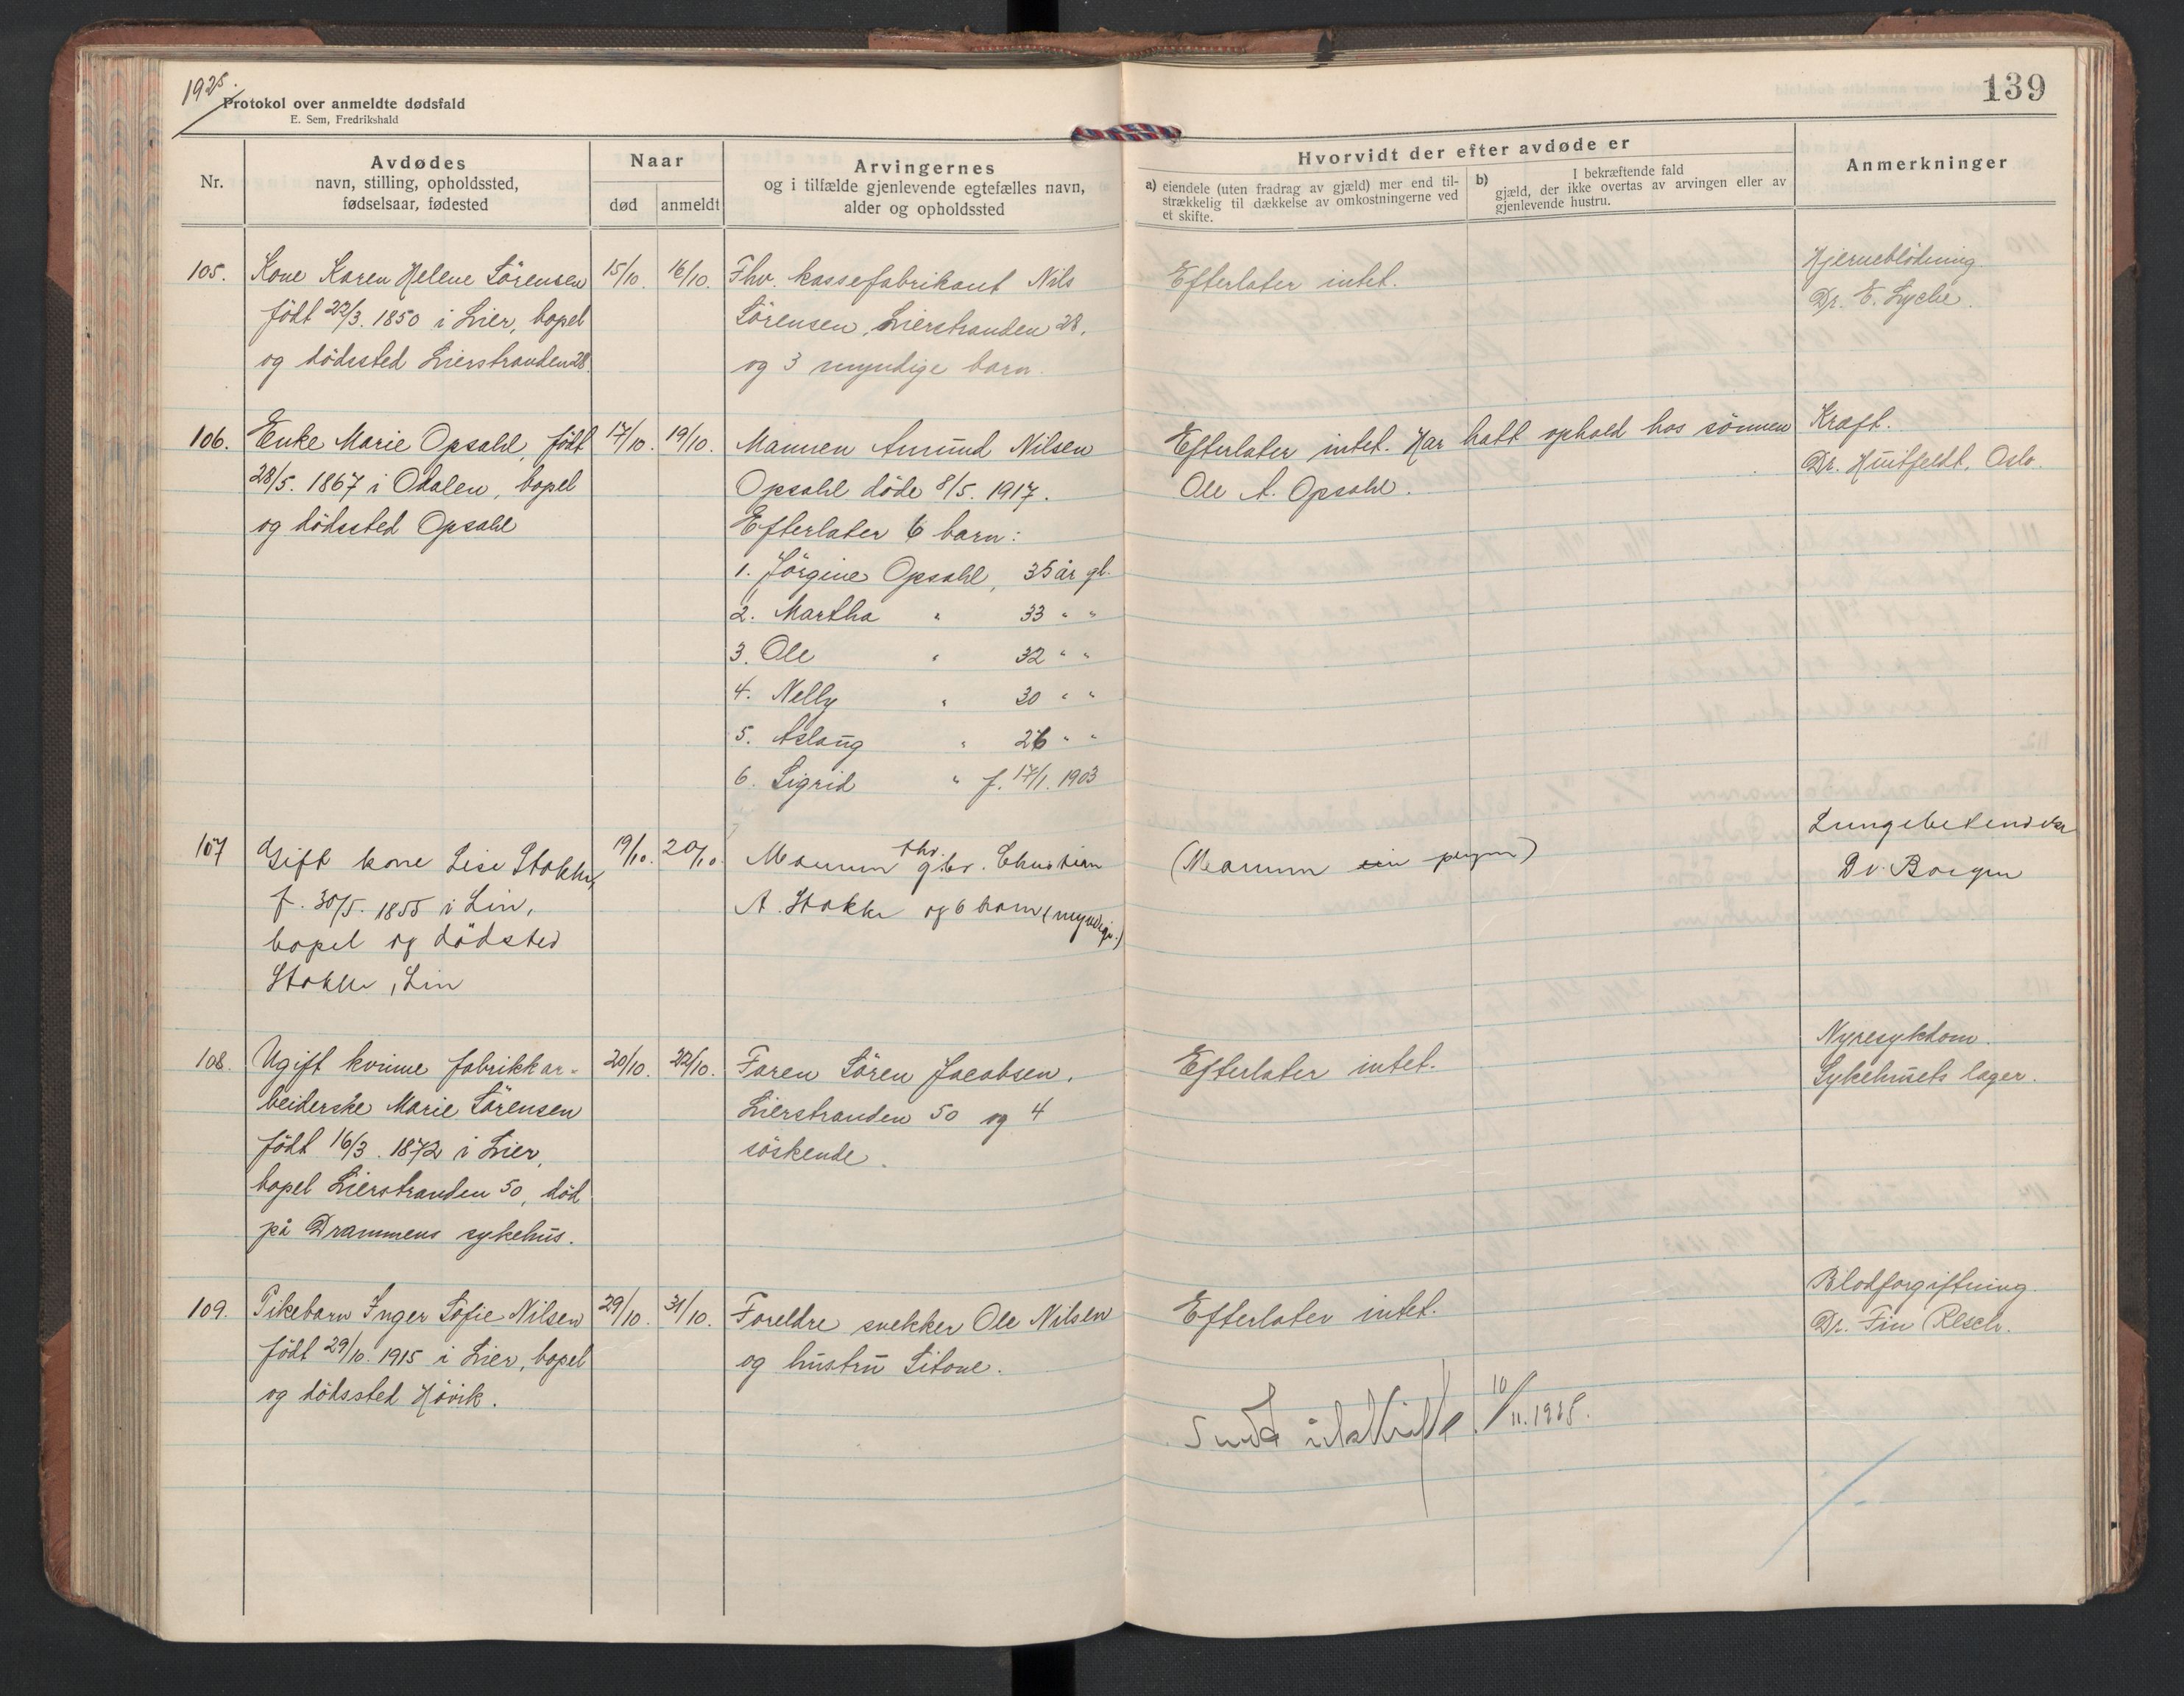 1925.
Protokol over anmeldte dødsfald
E. Sem, Fredrikshald
139
Nr.
Avdødes
navn, stilling, opholdssted,
fødselsaar, fødested
Naar
død
anmeldt
Arvingernes
og i tilfælde gjenlevende egtefælles navn,
alder og opholdssted
Hvorvidt der efter avdøde er
a) eiendele (uten fradrag av gjæld) mer end til-
strækkelig til dækkelse av omkostningerne ved
et skifte.
b) I bekræftende fald
gjæld, der ikke overtas av arvingen eller av
gjenlevende hustru.
Anmerkninger
105.
Kone Karen Helene Sörensen
födt 22/3. 1850 i Lier, bopel
og dödssted Lierstranden 28.
15/10.
16/10.
Fhv. kassefabrikant Nils
Sörensen, Lierstranden 28,
og 3 myndige barn.
Efterlater intet.
Hjerneblödning
Dr. E. Lyche.
106.
Enke Marie Opsahl, födt
28/5. 1867 i Odalen, bopel
og dödssted Opsahl
17/10.
19/10.
Mannen Amund Nilsen
Opsahl döde 8/5. 1917.
Efterlater 6 barn:
1. Jörgine Opsahl, 35 år gl.
2. Martha " 33 " "
3. Ole " 32 " "
4. Nelly " 30 " "
5. Aslaug " 26 " "
6. Sigrid " f. 17/1. 1903
Efterlater intet. Har hatt ophold hos sönnen
Ole A. Opsahl.
Kræft.
Dr. Huitfeldt, Oslo.
107
Gift kone Lise Stokke,
f. 30/5. 1855 i Lier,
bopel og dödsted
Stokke, Lier
19/10.
20/10.
Mannen fhv. gbr. Christian
A. Stokke og 6 barn (myndige.)
(Mannen
Lungebetendelse
Dr. Borgen
108.
Ugift kvinne fabrikkar-
beiderske Marie Sörensen
födt 16/3. 1872 i Lier,
bopel Lierstranden 50, död
på Drammens sykehus.
20/10.
22/10.
Faren Sören Jacobsen,
Lierstranden 50 og 4
söskende.
Efterlater intet.
Nyresykdom.
Sykehusets læger.
109.
Pikebarn Inger Sofie Nilsen
födt 29/10. 1915 i Lier, bopel
og dödssted Hövik.
29/10.
31/10.
Foreldre snekker Ole Nilsen
og hustru Sitone.
Efterlater intet.
Blodforgiftning.
Dr. Fin
10/11. 1925.